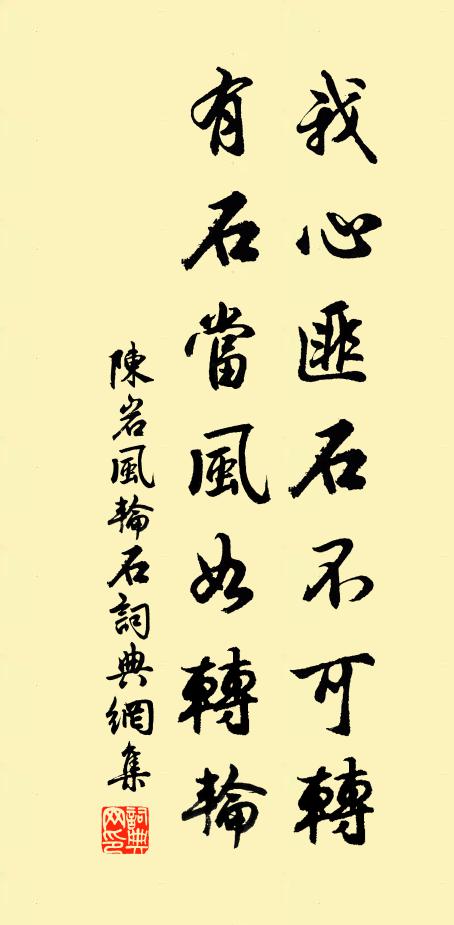 我心匪石不可轉
有石當風如轉輪
陳岩風輪石詞典網集
詞典网印